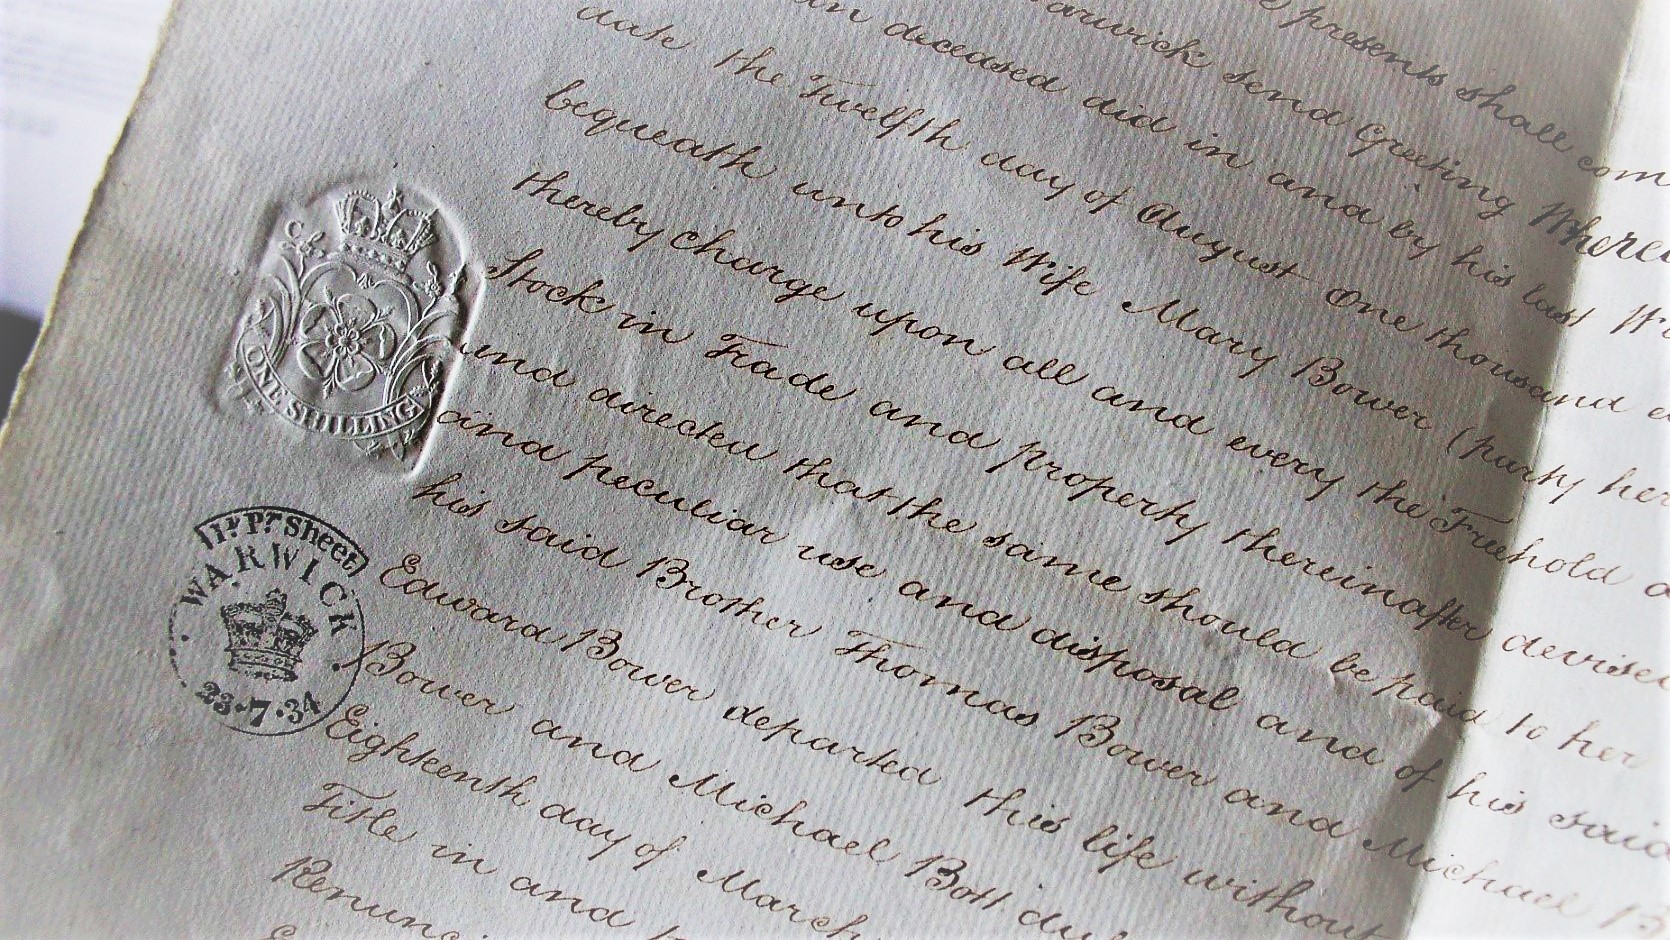 presents shall com
arwick send Greeting Where
deceased did in and by his last Wi
date the Twelfth day of August One thousand e
bequeath unto his Wife Mary Bower (party her
thereby charge upon all and every the Freehold a
Stock in Trade and property thereinafter devised
and directed that the same should be paid to her
and peculiar use and disposal and of his said
his said Brother Thomas Bower and Michael B
Edward Bower departed this life without
Bower and Michael Bott dul
Eighteenth day of March
Title in and
Renunci
ONE SHILLING
Pr. Sheet
WARWICK
23·7·34